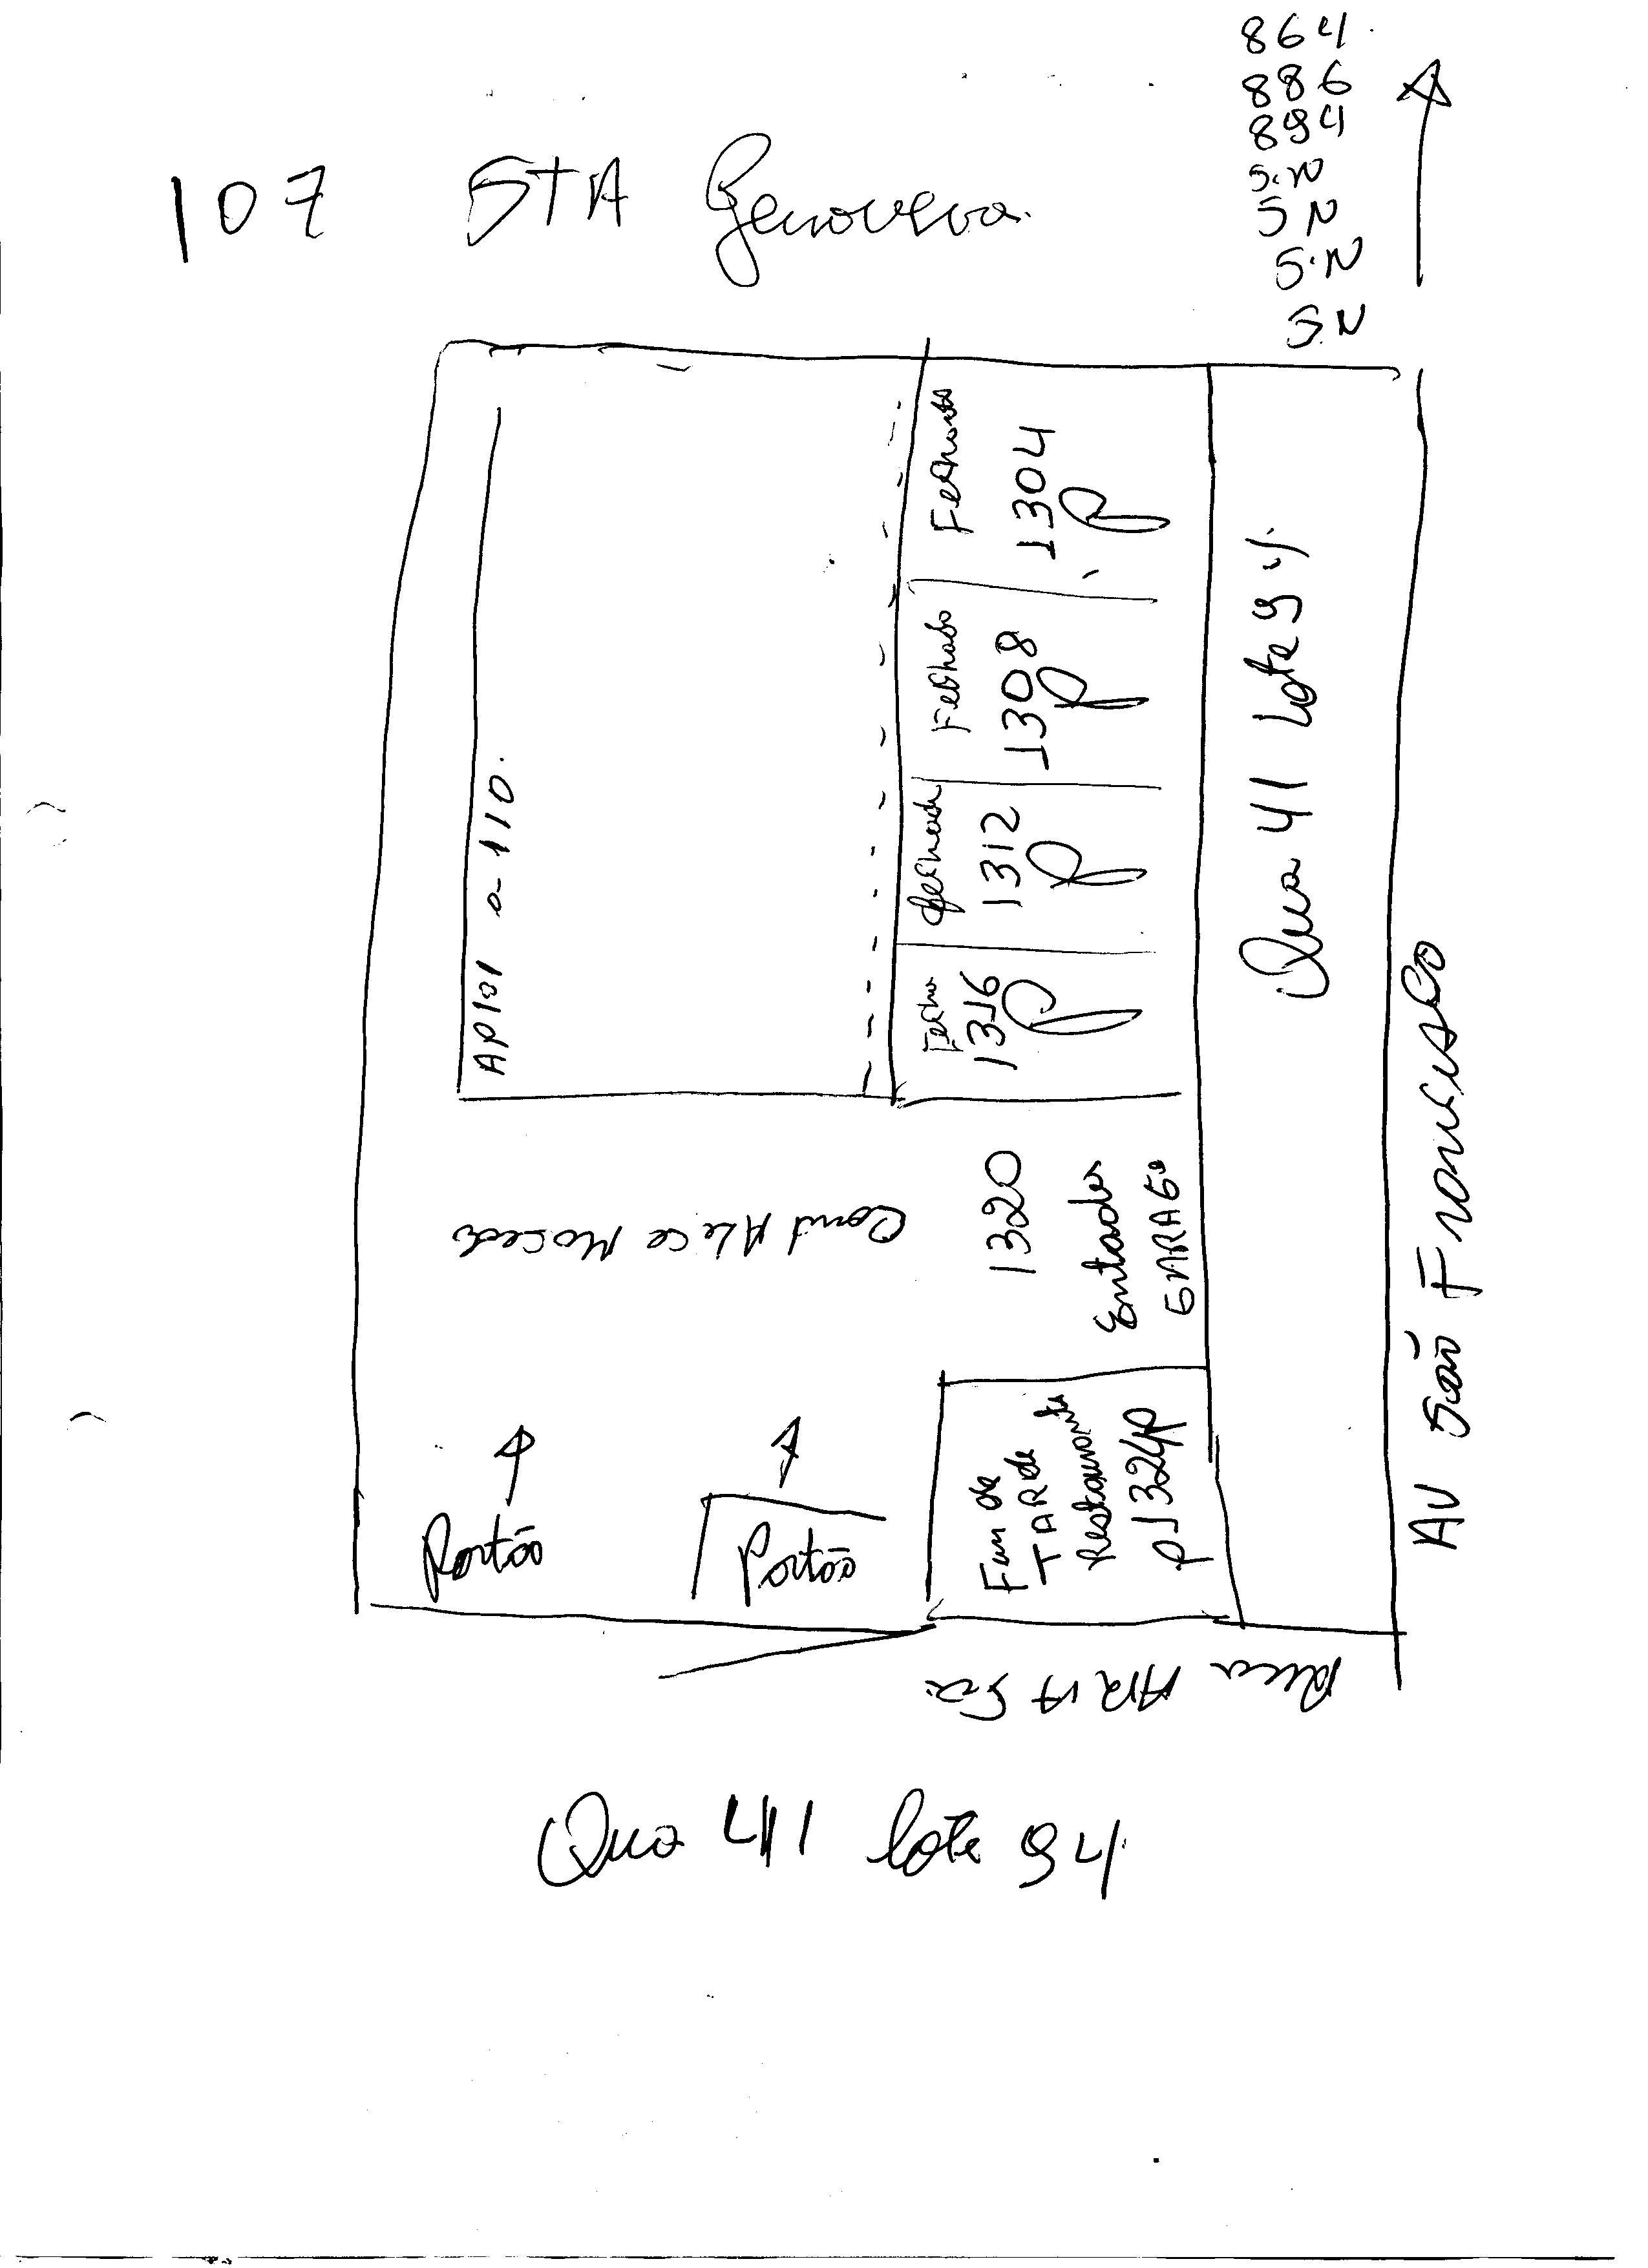 864
886
894
S.N
S N
S.N
S.N
107 STA Genoveva.
AP 101 a 110.
Fechado
1304
P
Fechado
1308
P
Fechado
1312
P
Fecha
1316
P
Qua 41 Lote 94.
1320
Entrada
GARAGe
Cond Alece Macedo
Portão
Portão
Fim de
TARde
Restaurante
P1324P
AV São Francisco
Rua
Qua 41 lote 94